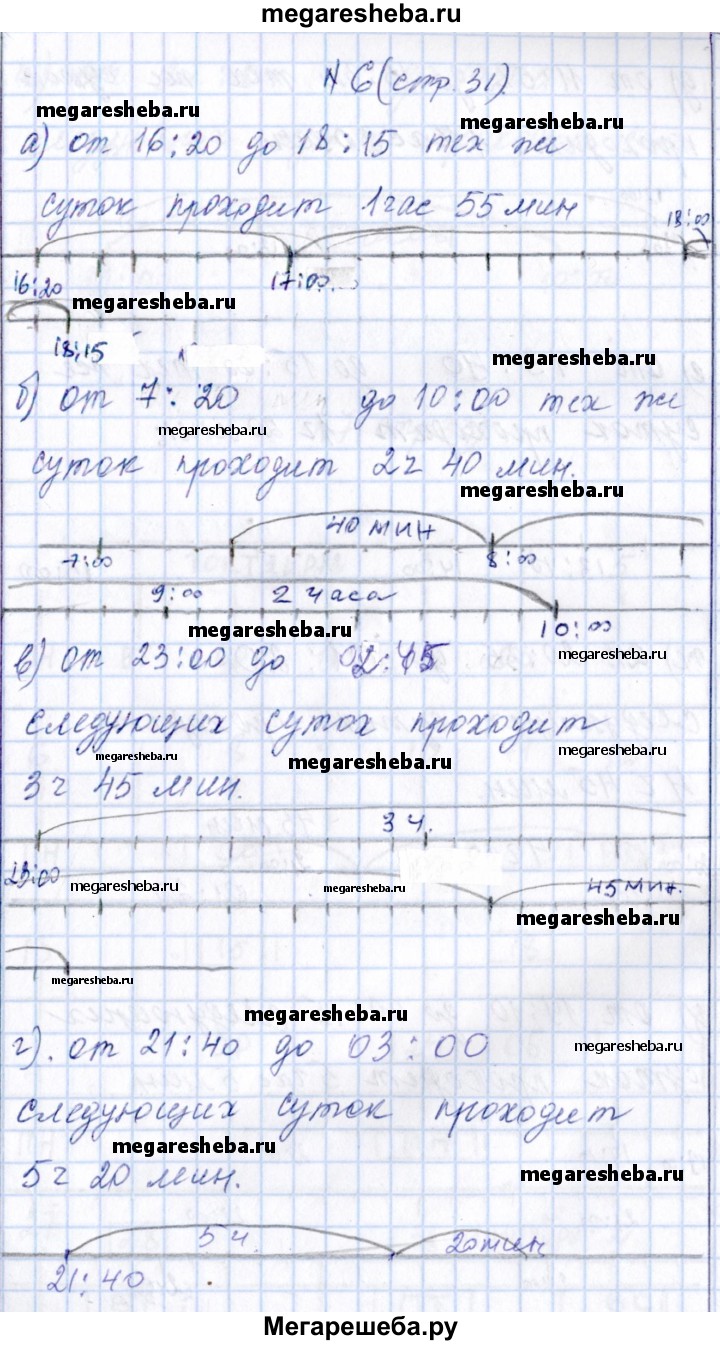 megaresheba.ru
N 6 (стр. 31).
megaresheba.ru
megaresheba.ru
а) от 16:20 до 18:15 тех же
суток проходит 1 час 55 мин
18:00
16:20
17:00
megaresheba.ru
18:15
megaresheba.ru
б) от 7:20 до 10:00 тех же
megaresheba.ru
суток проходит 2 ч 40 мин.
megaresheba.ru
40 мин
7:00
8:00
9:00
2 часа
megaresheba.ru
10:00
в) от 23:00 до 02:45
megaresheba.ru
следующих суток проходит
megaresheba.ru
megaresheba.ru
megaresheba.ru
3 ч 45 мин.
3 ч.
23:00
megaresheba.ru
megaresheba.ru
45 мин.
megaresheba.ru
megaresheba.ru
megaresheba.ru
г). от 21:40 до 03:00
megaresheba.ru
следующих суток проходит
megaresheba.ru
5 ч 20 мин.
megaresheba.ru
5 ч
20 мин
21:40
Мегарешеба.ру